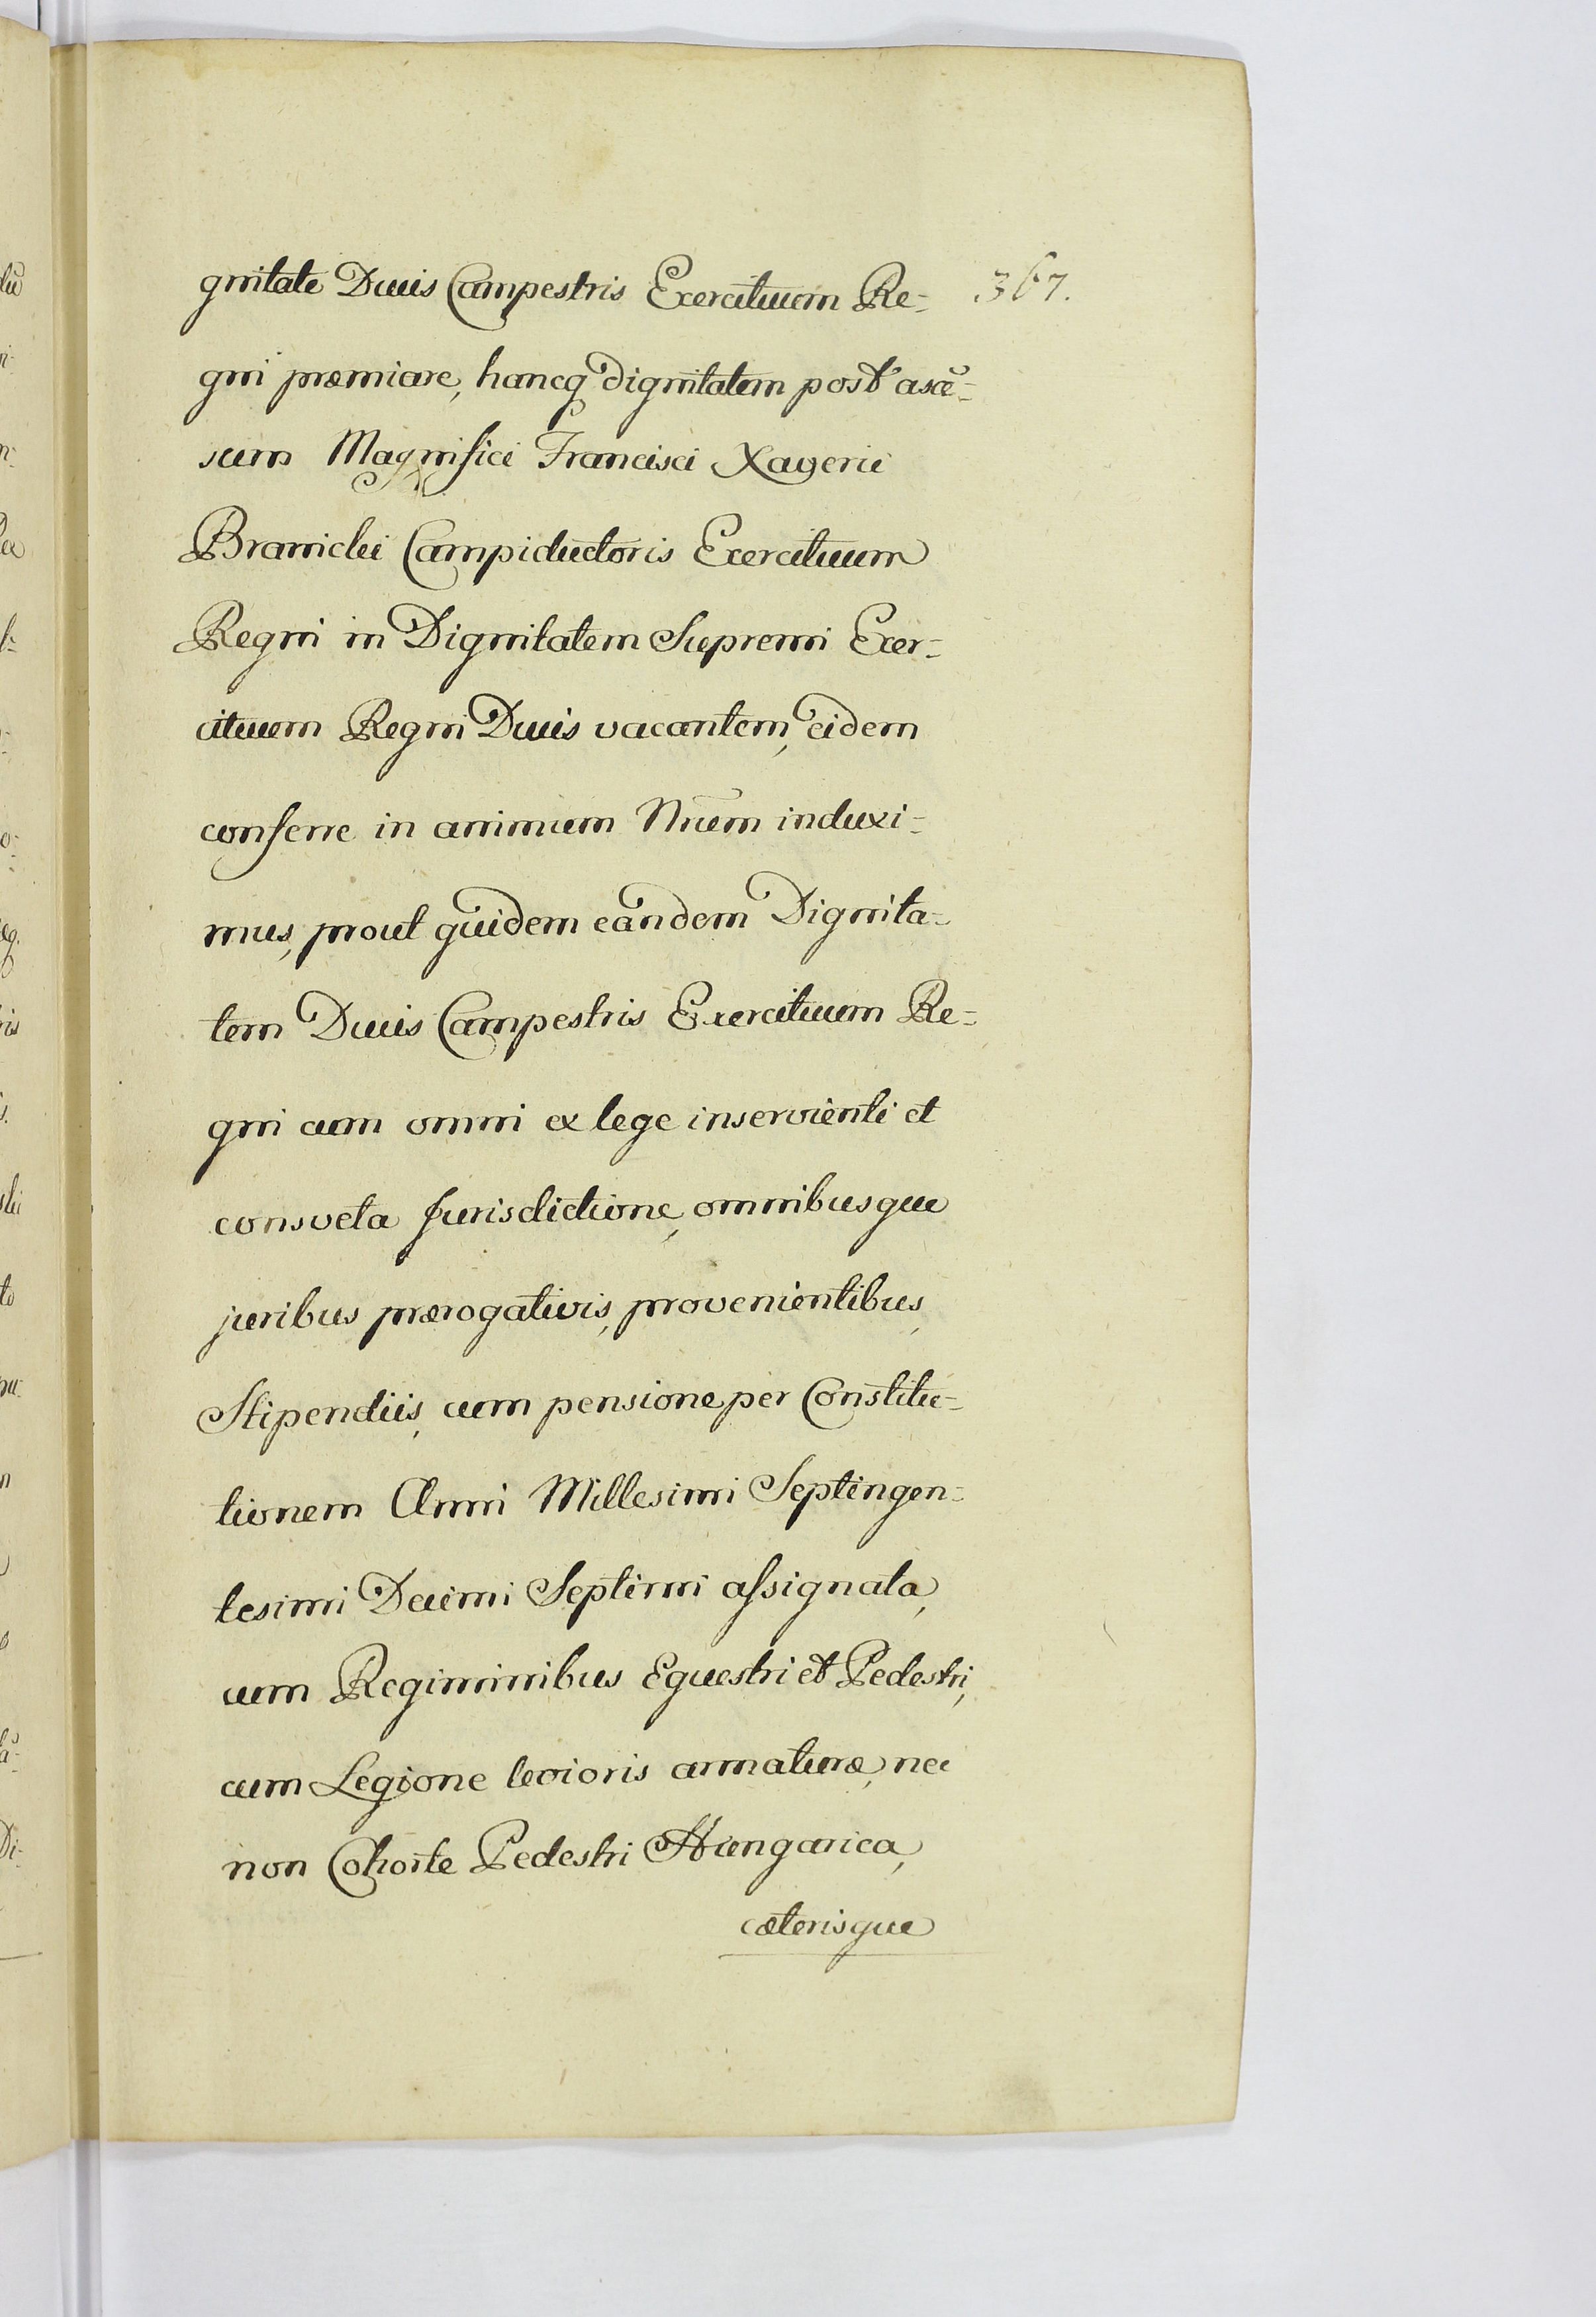 gnitate Ducis Campestris Exercituum Re- 367.
gni præmiare, hancq dignitatem post ascē-
sum Magnifici Francisci Xaverii
Branicki Campiductoris Exercituum
Regni in Dignitatem Supremi Exer-
cituum Regni Ducis vacantem, eidem
conferre in animum Nrūm induxi-
mus, prout quidem eandem Dignita-
tem Ducis Campestris Exercituum Re-
gni cum omni ex lege inservienti et
consveta Jurisdictione, omnibusque
juribus prærogativis, provenientibus,
Stipendiis, cum pensione per Constitu-
tionem Anni Millesimi Septingen-
tesimi Decimi Septimi assignata,
cum Regiminibus Equestri et Pedestri,
cum Legione levioris armaturæ, nec
non Cohorte Pedestri Hungarica,
cæterisque